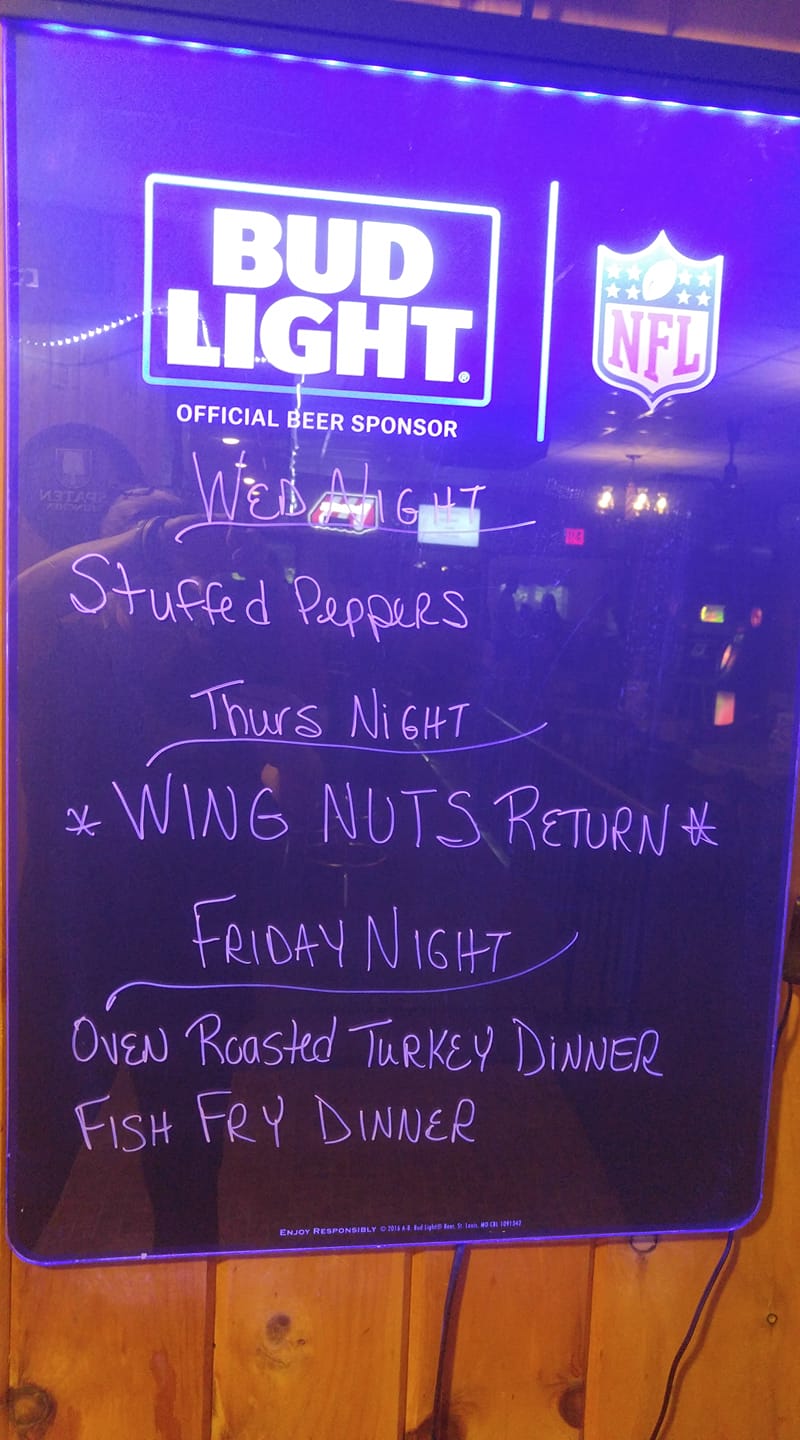 BUD
LIGHT®
NFL
OFFICIAL BEER SPONSOR
SPATEN
WED NIGHT
Stuffed Peppers
Thurs NiGHT
* WING NUTS RETURN *
FRIDAY NIGHT
OVEN Roasted TURKEY DiNNER
FISH FRY DINNER
ENJOY RESPONSIBLY © 2016 A-B, Bud Light® Beer, St. Louis, MO